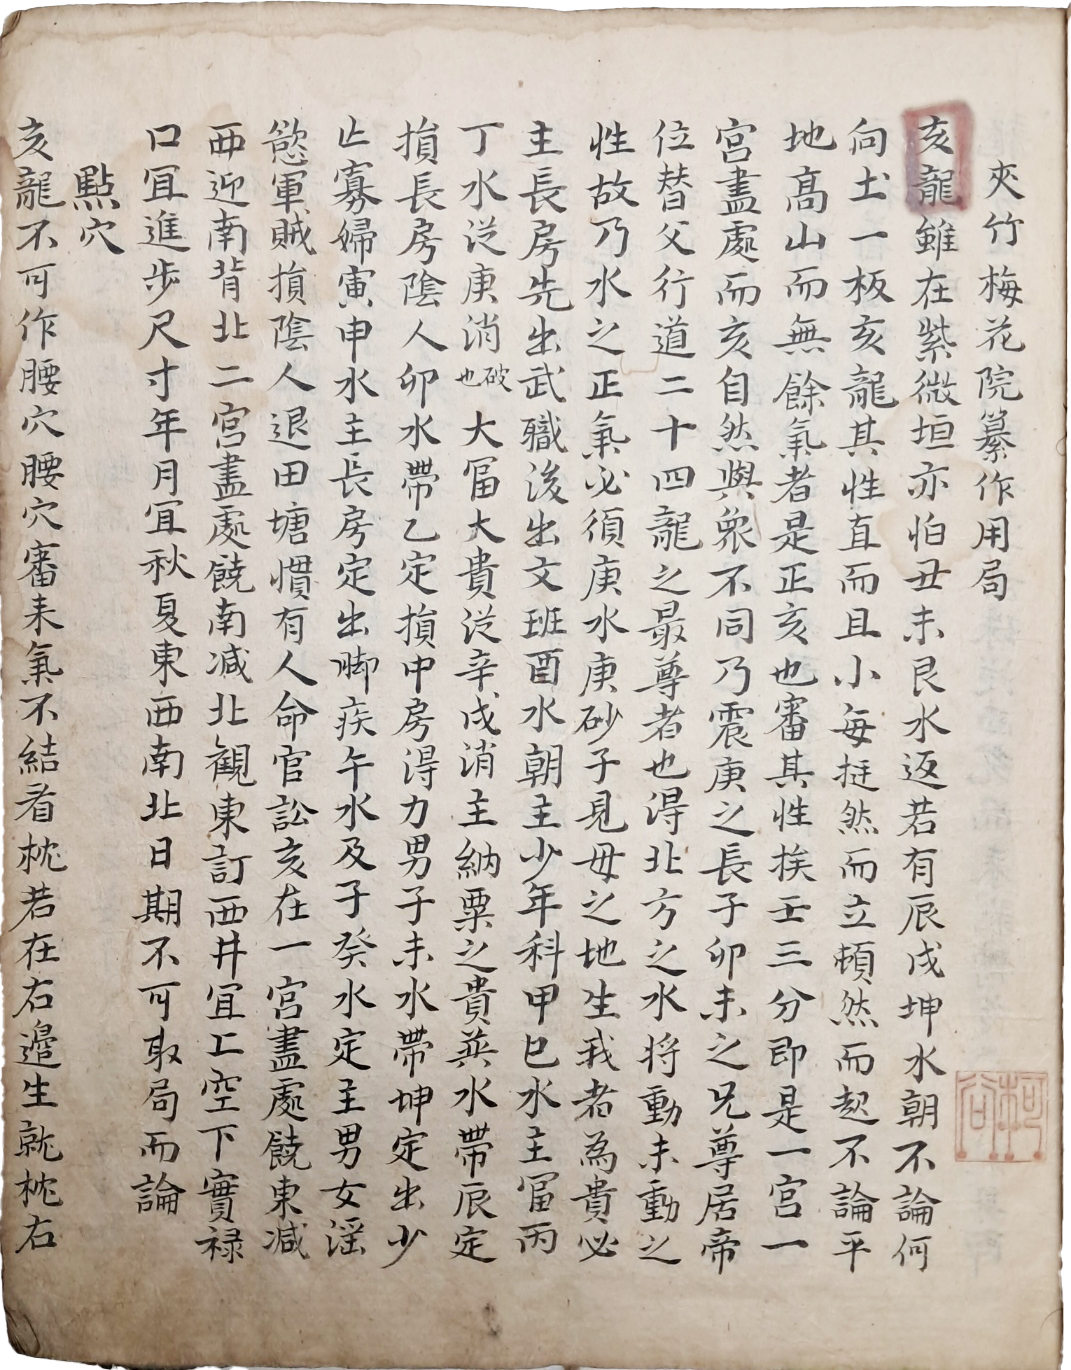 夾竹梅花院纂作用局
亥龍雖在紫微垣亦怕丑未艮水返若有辰戌坤水朝不論何
向土一板亥龍其性直而且小每挺然而立頓然而起不論平
地高山而無餘氣者是正亥也審其性挨壬三分即是一宮一
宮盡處而亥自然與眾不同乃震庚之長子卯未之兄尊居帝
位替父行道二十四龍之最尊者也得北方之水將動未動之
性故乃水之正氣必須庚水庚砂子見母之地生我者為貴必
主長房先出武職後出文班酉水朝主少年科甲巳水主冨丙
丁水従庚消破也大冨大貴従辛戌消主納粟之貴英水帶辰定
損長房陰人卯水帶乙定損中房得力男子未水帶坤定出少
亡寡婦寅申水主長房定出脚疾午水及子癸水定主男女淫
慾軍賊損陰人退田塘慣有人命官訟亥在一宮盡處饒東减
西迎南背北二宮盡處饒南减北觀東訂西井冝上空下實禄
口冝進步尺寸年月冝秋夏東西南北日期不可取局而論
點穴
亥龍不可作腰穴腰穴審耒氣不結看枕若在右邉生就枕右
柯谷